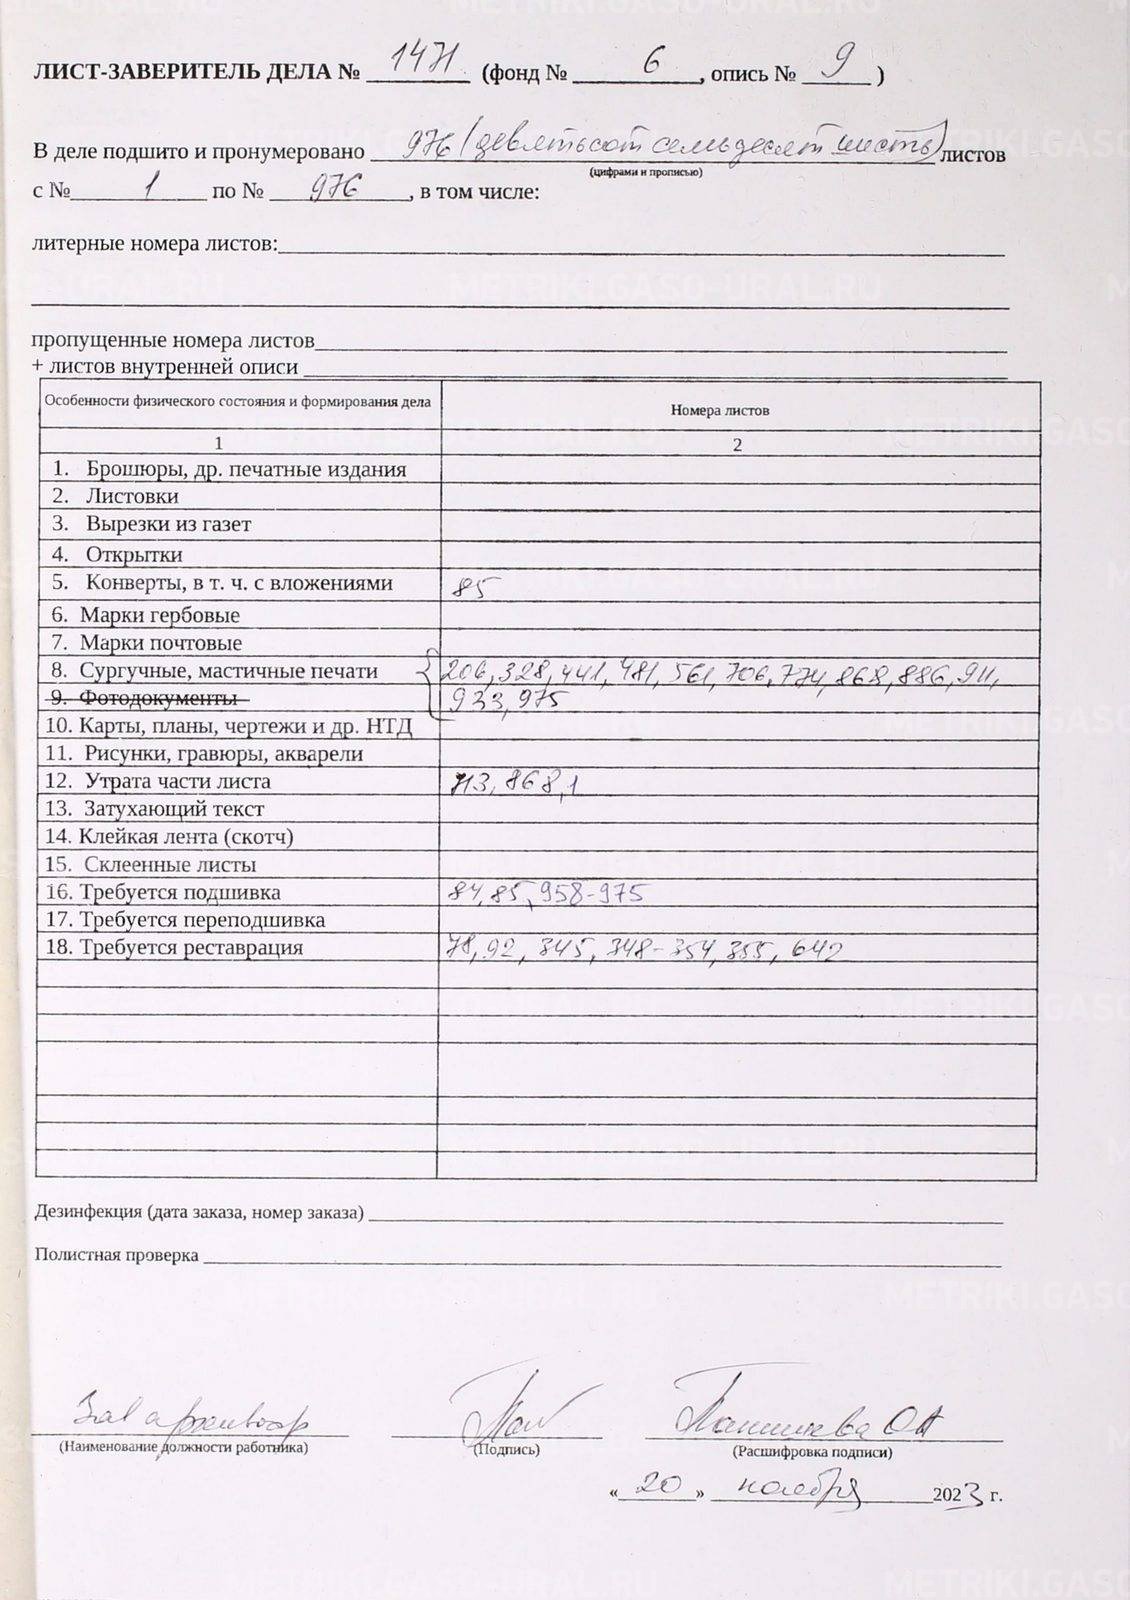 ЛИСТ-ЗАВЕРИТЕЛЬ ДЕЛА № 1471 (фонд № 6, опись № 9)
В деле подшито и пронумеровано 976 (девятьсот семьдесят шесть) листов
(цифрами и прописью)
с № 1 по № 976, в том числе:
литерные номера листов:
пропущенные номера листов
+ листов внутренней описи
Особенности физического состояния и формирования дела Номера листов
1 2
1. Брошюры, др. печатные издания
2. Листовки
3. Вырезки из газет
4. Открытки
5. Конверты, в т. ч. с вложениями 85
6. Марки гербовые
7. Марки почтовые
8. Сургучные, мастичные печати 206, 328, 441, 481, 561, 706, 774, 868, 886, 911,
9. Фотодокументы 933, 975
10. Карты, планы, чертежи и др. НТД
11. Рисунки, гравюры, акварели
12. Утрата части листа 713, 868, 1
13. Затухающий текст
14. Клейкая лента (скотч)
15. Склеенные листы
16. Требуется подшивка 84, 85, 958-975
17. Требуется переподшивка
18. Требуется реставрация 78, 92, 345, 348-354, 355, 642
Дезинфекция (дата заказа, номер заказа)
Полистная проверка
Зав архивохр
(Наименование должности работника) (Подпись) (Расшифровка подписи)
«20» ноября 2023 г.
METRIKI.GASO-URAL.RU